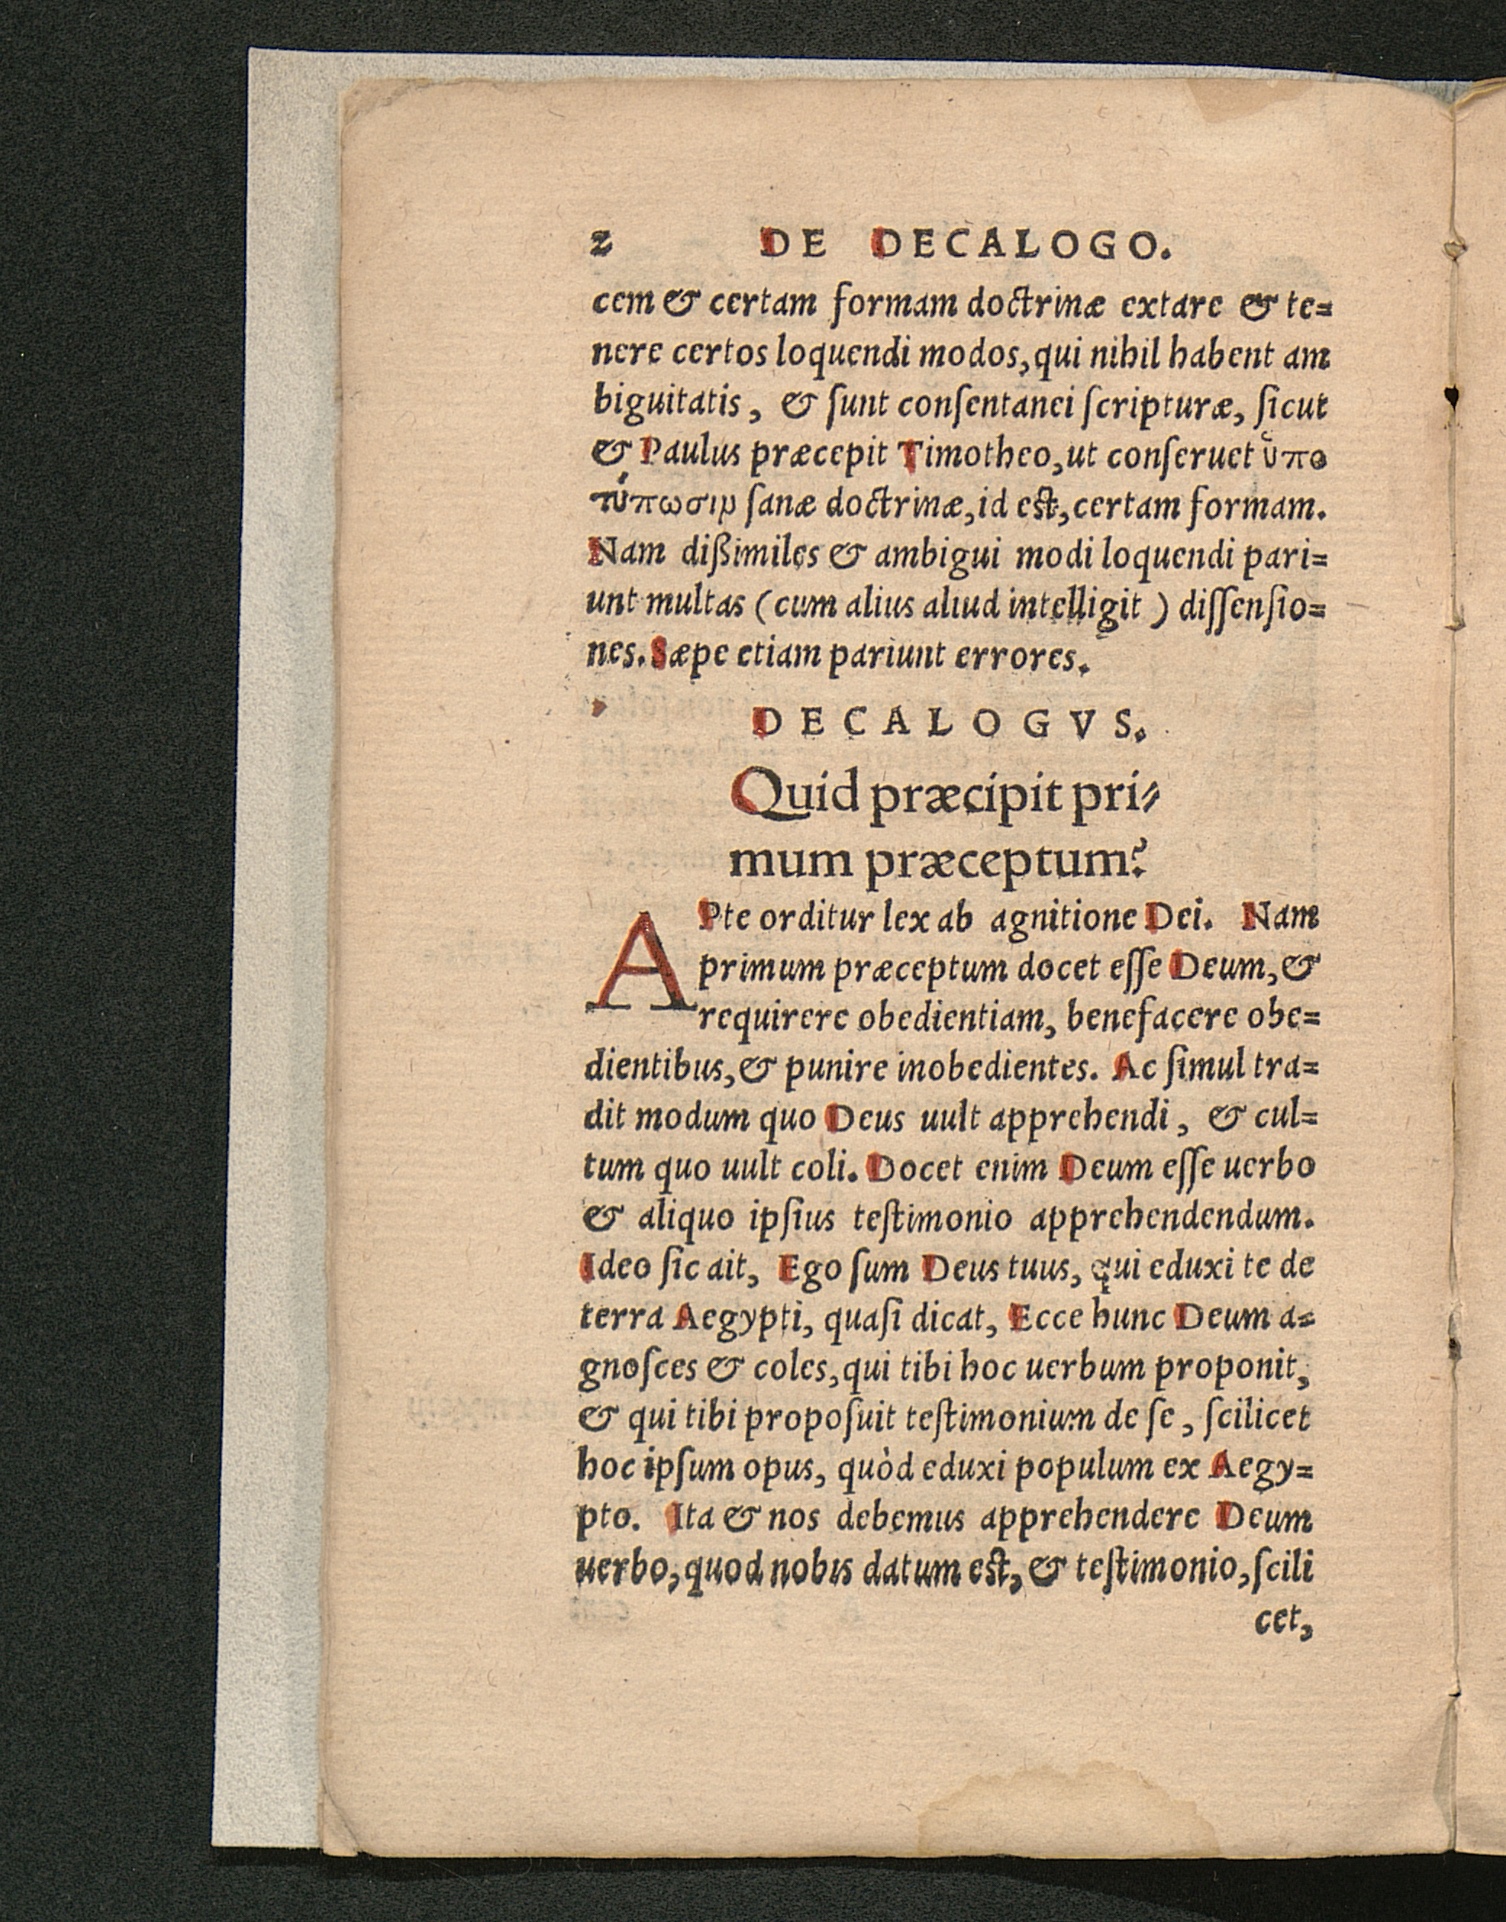 2 DE DECALOGO.
cem & certam formam doctrinæ extare & te=
nere certos loquendi modos, qui nihil habent am
biguitatis, & ſunt conſentanei ſcripturæ, ſicut
& Paulus præcepit Timotheo, ut conſeruet ὑπο
τύπωσιν ſanæ doctrinæ, id eſt, certam formam.
Nam dißimiles & ambigui modi loquendi pari=
unt multas (cum alius aliud intelligit) diſſenſio=
nes. Sæpe etiam pariunt errores.
DECALOGVS.
Quid præcipit pri=
mum præceptum?
APte orditur lex ab agnitione Dei. Nam
primum præceptum docet eſſe Deum, &
requirere obedientiam, benefacere obe=
dientibus, & punire inobedientes. Ac ſimul tra=
dit modum quo Deus uult apprehendi, & cul=
tum quo uult coli. Docet enim Deum eſſe uerbo
& aliquo ipſius teſtimonio apprehendendum.
Ideo ſic ait, Ego ſum Deus tuus, qui eduxi te de
terra Aegypti, quaſi dicat, Ecce hunc Deum a=
gnoſces & coles, qui tibi hoc uerbum proponit,
& qui tibi propoſuit teſtimonium de ſe, ſcilicet
hoc ipſum opus, quòd eduxi populum ex Aegy=
pto. Ita & nos debemus apprehendere Deum
uerbo, quod nobis datum eſt, & teſtimonio, ſcili
cet,